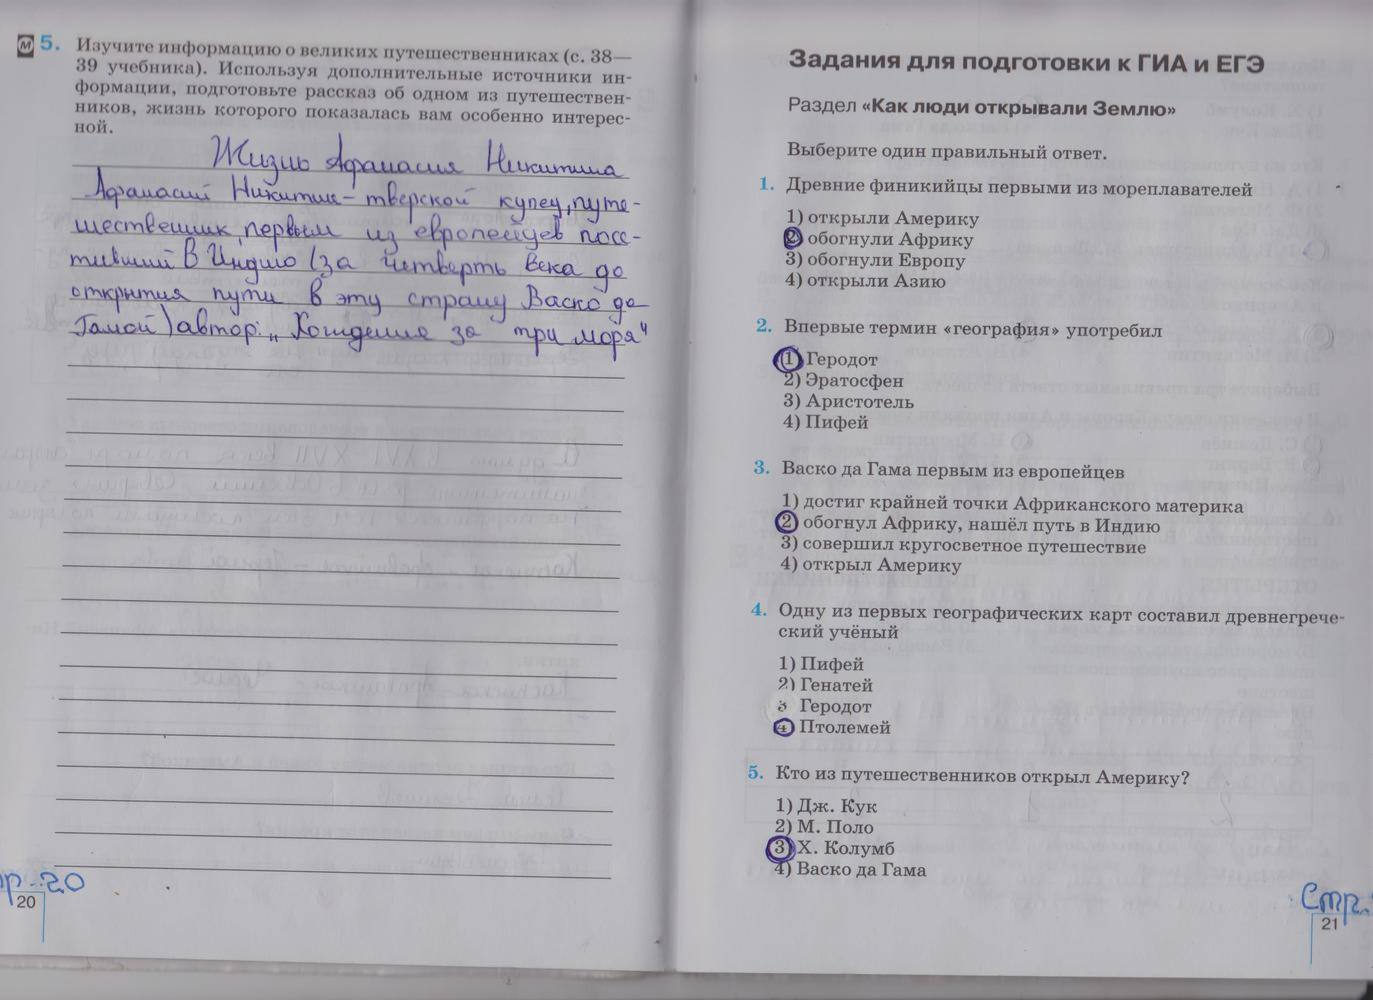 м 5. Изучите информацию о великих путешественниках (с. 38—
39 учебника). Используя дополнительные источники ин-
формации, подготовьте рассказ об одном из путешествен-
ников, жизнь которого показалась вам особенно интерес-
ной.
Жизнь Афанасия Никитина
Афанасий Никитин - тверской купец, путе-
шественник, первым из европейцев посе-
тивший в Индию (за четверть века до
открытия пути в эту страну Васко да
Гамой) автор: „Хождения за три моря"
20
Задания для подготовки к ГИА и ЕГЭ
Раздел «Как люди открывали Землю»
Выберите один правильный ответ.
1. Древние финикийцы первыми из мореплавателей
1) открыли Америку
2) обогнули Африку
3) обогнули Европу
4) открыли Азию
2. Впервые термин «география» употребил
1) Геродот
2) Эратосфен
3) Аристотель
4) Пифей
3. Васко да Гама первым из европейцев
1) достиг крайней точки Африканского материка
2) обогнул Африку, нашёл путь в Индию
3) совершил кругосветное путешествие
4) открыл Америку
4. Одну из первых географических карт составил древнегрече-
ский учёный
1) Пифей
2) Генатей
3 Геродот
4 Птолемей
5. Кто из путешественников открыл Америку?
1) Дж. Кук
2) М. Поло
3) Х. Колумб
4) Васко да Гама
р. 20
Стр.
21